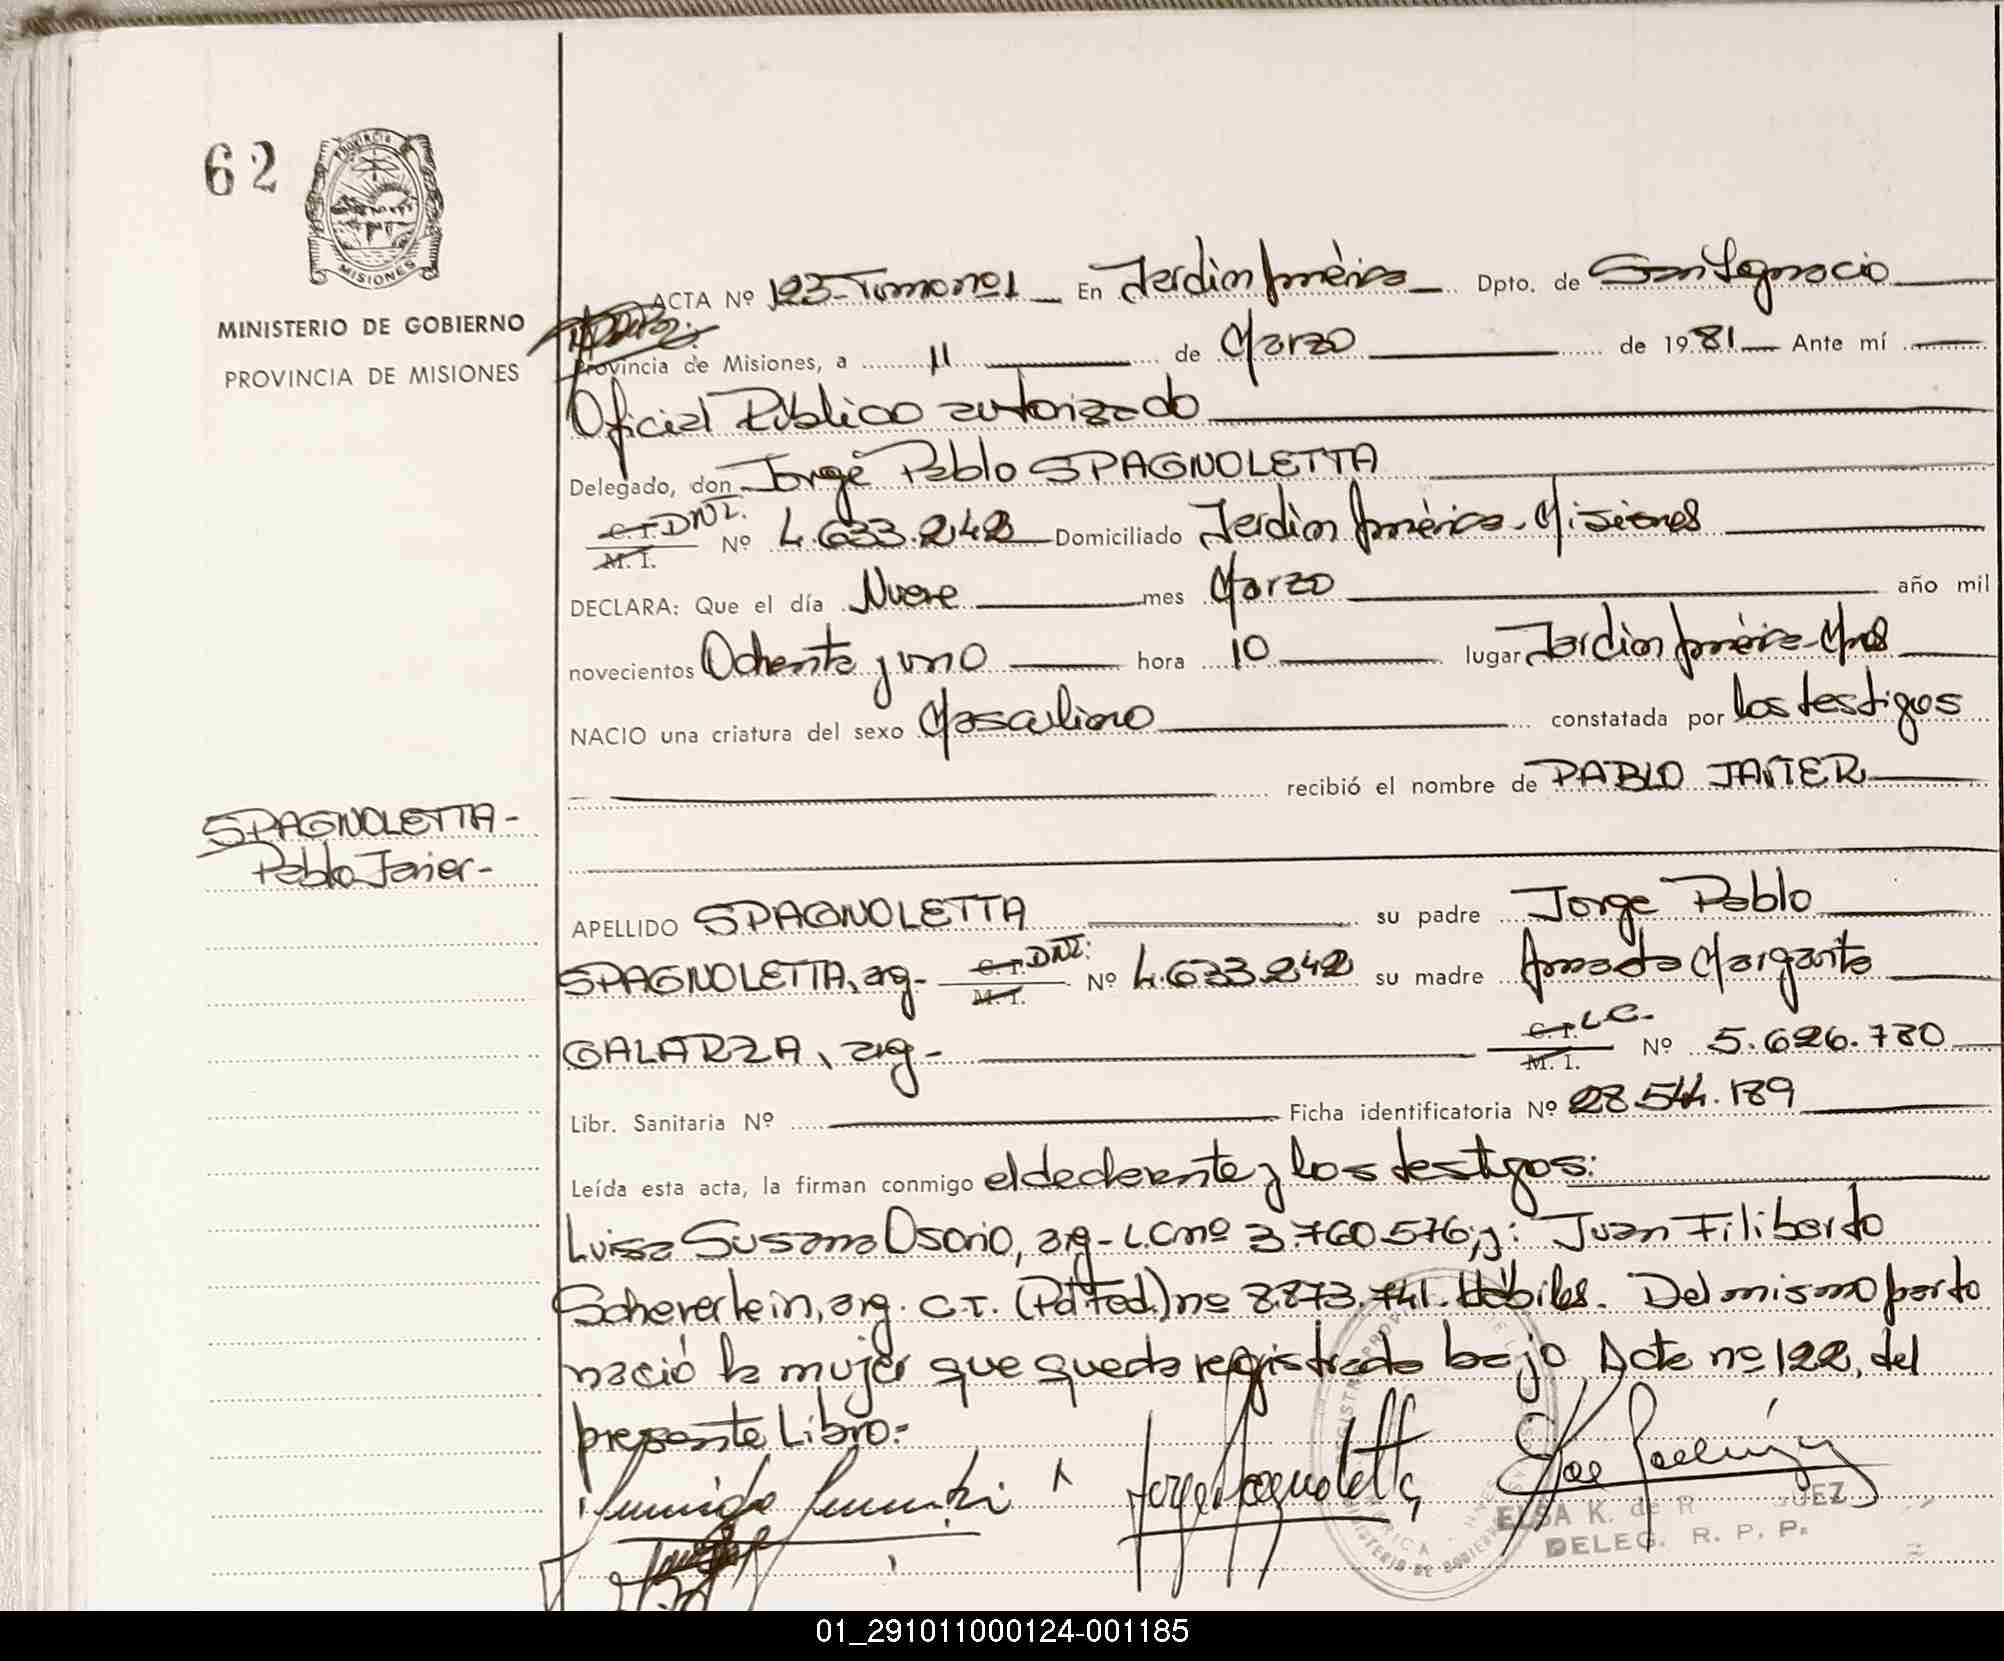 62
PROVINCIA
MISIONES
MINISTERIO DE GOBIERNO
PROVINCIA DE MISIONES
SPAGNOLETTA-
Pablo Javier-
ACTA Nº 123-Tomo nº1 En Jardín América Dpto. de San Ignacio
Provincia de Misiones, a 11 de Marzo de 1981 Ante mí
Oficial Público autorizado
Delegado, don Jorge Pablo SPAGNOLETTA
C.I. DNI.
M. I. Nº 4.633.242 Domiciliado Jardín América-Misiones
DECLARA: Que el día Nueve mes Marzo año mil
novecientos Ochenta y uno hora 10 lugar Jardín América-Mnes
NACIO una criatura del sexo Masculino constatada por los testigos
recibió el nombre de PABLO JAVIER
APELLIDO SPAGNOLETTA su padre Jorge Pablo
SPAGNOLETTA, arg- C.I. DNI. M.I. Nº 4.633.242 su madre Amada Margarita
GALARZA, arg- C.I. LC. M. I. Nº 5.626.780
Libr. Sanitaria Nº Ficha identificatoria Nº 28.544.189
Leída esta acta, la firman conmigo el declarante y los testigos:
Luisa Susana Osorio, arg- L.C nº 3.760.576; y: Juan Filiberto
Scheverlein, arg. C.I. (Pol Fed.) nº 8.873.741. Hábiles. Del mismo parto
nació la mujer que queda registrada bajo Acta nº 122, del
presente Libro.-
Jorge Spagnoletta
ELSA K. de R
DELEG. R. P. P.
01_291011000124-001185